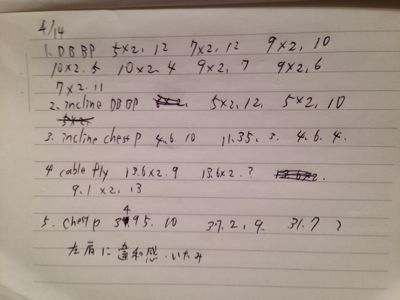 4/14
1. DB BP 5x2, 12 7x2, 12 9x2, 10
10x2. 5 10x2. 4 9x2, 7 9x2, 6
7x2. 11
2. incline DB BP 5x2, 12, 5x2, 10
3. incline chest P 4.6 10 11.35. 3. 4.6. 4.
4 cable fly 13.6x2. 9 13.6x2. ?
9.1x2, 13
5. chest p 95. 10 37.2, 9. 31.7
左肩に違和感.いたみ